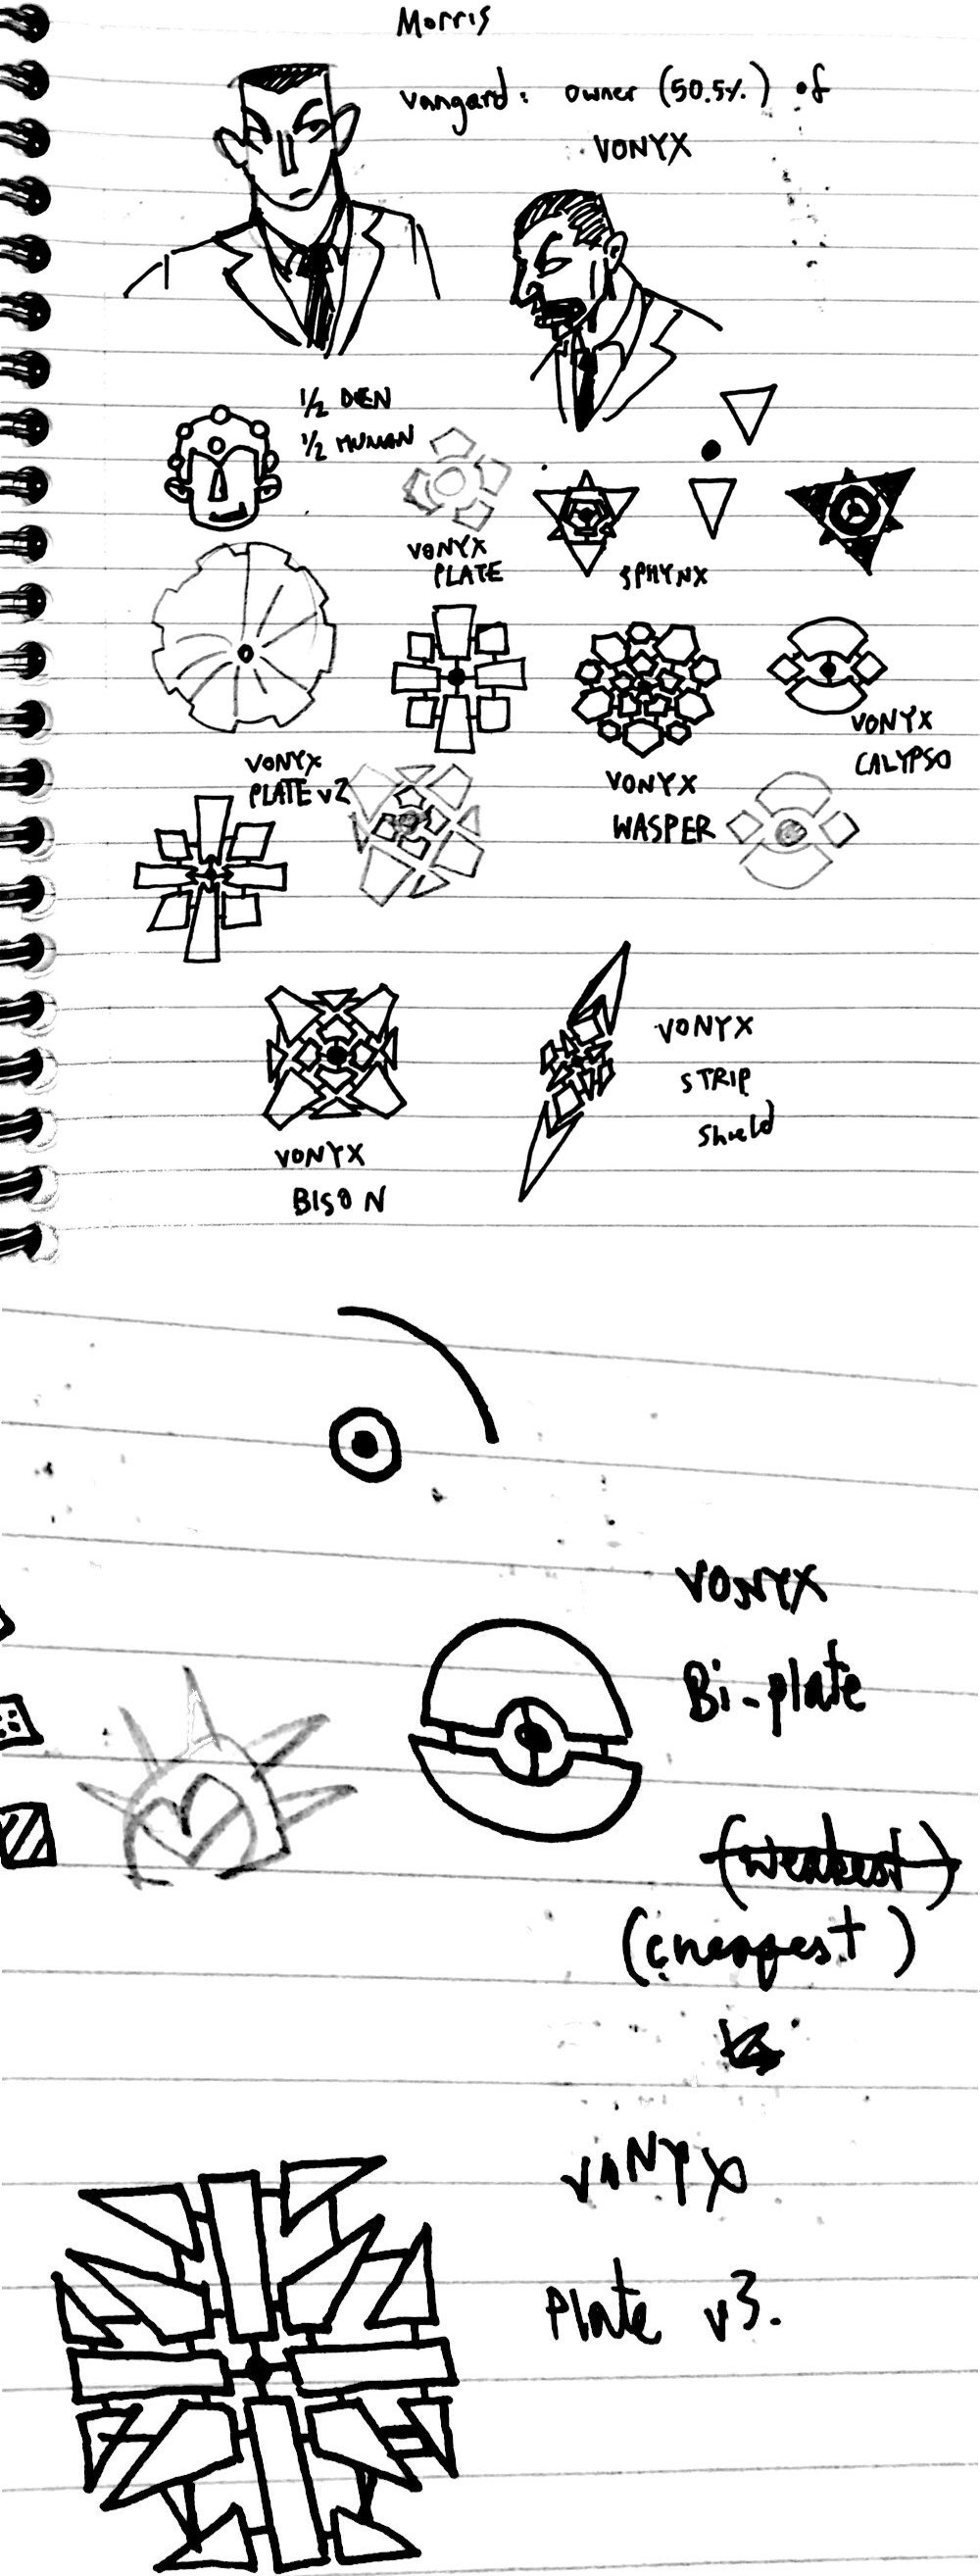 Morris
Vangard: owner (50.5%) of
VONYX
1/2 DEN
1/2 HUMAN
VONYX
PLATE
SPHYNX
VONYX
CALYPSO
VONYX
PLATE v2
VONYX
WASPER
VONYX
STRIP
Shield
VONYX
BISON
VONYX
Bi-plate
(weakest)
(cheapest)
VONYX
Plate v3.